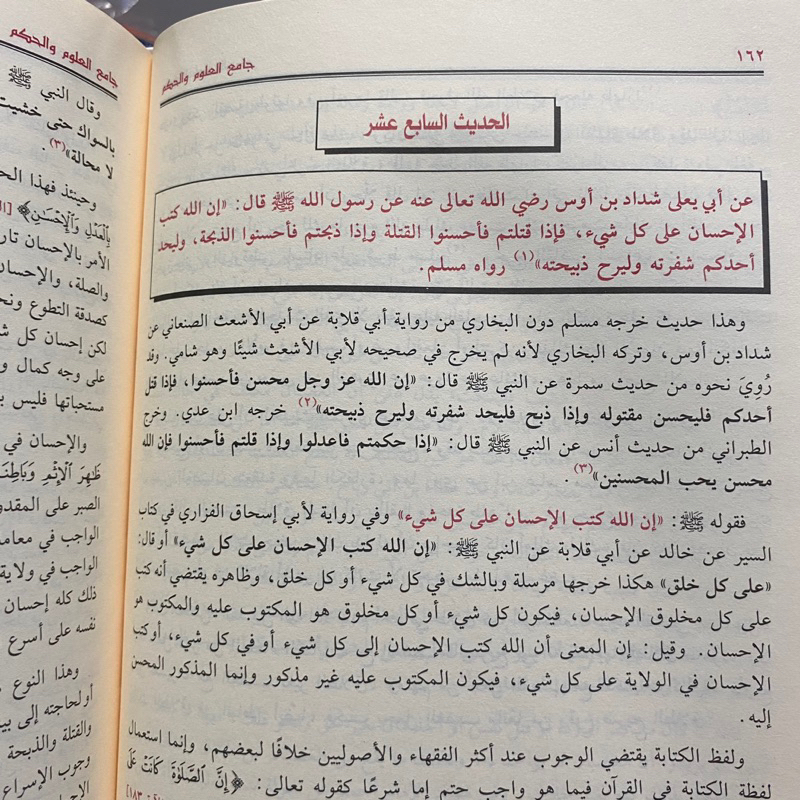 ١٦٢
جامع العلوم والحكم
الحديث السابع عشر
عن أبي يعلى شداد بن أوس رضي الله تعالى عنه عن رسول الله ﷺ قال: «إن الله كتب
الإحسان على كل شيء، فإذا قتلتم فأحسنوا القتلة وإذا ذبحتم فأحسنوا الذبحة، وليحد
أحدكم شفرته وليرح ذبيحته»(١) رواه مسلم.
وهذا حديث خرجه مسلم دون البخاري من رواية أبي قلابة عن أبي الأشعث الصنعاني عن
شداد بن أوس، وتركه البخاري لأنه لم يخرج في صحيحه لأبي الأشعث شيئًا وهو شامي. وقد
رُوِيَ نحوه من حديث سمرة عن النبي ﷺ قال: «إن الله عز وجل محسن فأحسنوا، فإذا قتل
أحدكم فليحسن مقتوله وإذا ذبح فليحد شفرته وليرح ذبيحته»(٢) خرجه ابن عدي. وخرج
الطبراني من حديث أنس عن النبي ﷺ قال: «إذا حكمتم فاعدلوا وإذا قلتم فأحسنوا فإن الله
محسن يحب المحسنين»(٣).
فقوله ﷺ: «إن الله كتب الإحسان على كل شيء» وفي رواية لأبي إسحاق الفزاري في كتاب
السير عن خالد عن أبي قلابة عن النبي ﷺ: «إن الله كتب الإحسان على كل شيء» أو قال:
«على كل خلق» هكذا خرجها مرسلة وبالشك في كل شيء أو كل خلق، وظاهره يقتضي أنه كتب
على كل مخلوق الإحسان، فيكون كل شيء أو كل مخلوق هو المكتوب عليه والمكتوب هو
الإحسان. وقيل: إن المعنى أن الله كتب الإحسان إلى كل شيء أو في كل شيء، أو كتب
الإحسان في الولاية على كل شيء، فيكون المكتوب عليه غير مذكور وإنما المذكور المحسن
إليه.
ولفظ الكتابة يقتضي الوجوب عند أكثر الفقهاء والأصوليين خلافًا لبعضهم، وإنما استعمال
لفظة الكتابة في القرآن فيما هو واجب حتم إما شرعًا كقوله تعالى: ﴿إِنَّ ٱلصَّلَوٰةَ كَانَتْ عَلَى
جامع العلوم والحكم
وقال النبي ﷺ
بالسواك حتى خشيت
لا محالة»(٣)
وحينئذ فهذا
بِٱلْعَدْلِ وَٱلْإِحْسَٰنِ﴾
الأمر بالإحسان
والصلة، والإحسان
كصدقة التطوع
لكن إحسان كل
على وجه كمال
مستحباتها فليس
والإحسان في
ظَٰهِرَ ٱلْإِثْمِ وَبَاطِنَهُ
الصبر على
الواجب في
الواجب في ولاية
ذلك كله إحسان
نفسه على أسرع
وهذا النوع
أو لحاجته إلى
والقتلة والذبحة
وجوب الإسراع